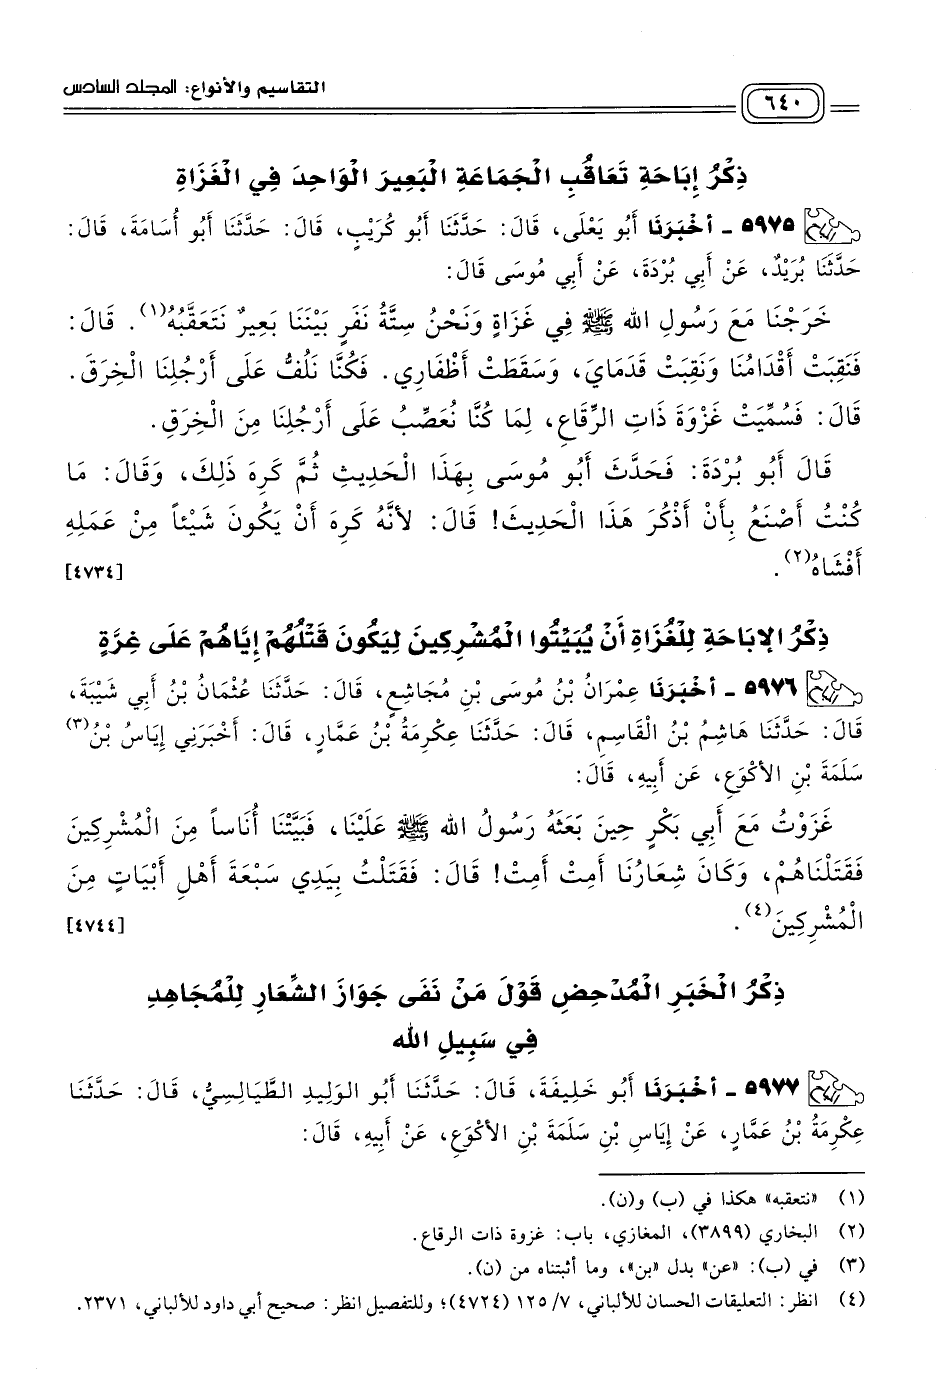 التقاسيم والأنواع: المجلد السادس
٦٤٠
ذِكْرُ إِبَاحَةِ تَعَاقُبِ الْجَمَاعَةِ الْبَعِيرَ الْوَاحِدَ فِي الْغَزَاةِ
٥٩٧٥ - أَخْبَرَنَا أَبُو يَعْلَى، قَالَ: حَدَّثَنَا أَبُو كُرَيْبٍ، قَالَ: حَدَّثَنَا أَبُو أُسَامَةَ، قَالَ:
حَدَّثَنَا بُرَيْدٌ، عَنْ أَبِي بُرْدَةَ، عَنْ أَبِي مُوسَى قَالَ:
خَرَجْنَا مَعَ رَسُولِ الله ﷺ فِي غَزَاةٍ وَنَحْنُ سِتَّةُ نَفَرٍ بَيْنَنَا بَعِيرٌ نَتَعَقَّبُهُ(١). قَالَ:
فَنَقِبَتْ أَقْدَامُنَا وَنَقِبَتْ قَدَمَايَ، وَسَقَطَتْ أَظْفَارِي. فَكُنَّا نَلُفُّ عَلَى أَرْجُلِنَا الْخِرَقَ.
قَالَ: فَسُمِّيَتْ غَزْوَةَ ذَاتِ الرِّقَاعِ، لِمَا كُنَّا نُعَصِّبُ عَلَى أَرْجُلِنَا مِنَ الْخِرَقِ.
قَالَ أَبُو بُرْدَةَ: فَحَدَّثَ أَبُو مُوسَى بِهَذَا الْحَدِيثِ ثُمَّ كَرِهَ ذَلِكَ، وَقَالَ: مَا
كُنْتُ أَصْنَعُ بِأَنْ أَذْكُرَ هَذَا الْحَدِيثَ! قَالَ: لأَنَّهُ كَرِهَ أَنْ يَكُونَ شَيْئاً مِنْ عَمَلِهِ
أَفْشَاهُ(٢). [٤٧٣٤]
ذِكْرُ الإِبَاحَةِ لِلْغُزَاةِ أَنْ يُبَيِّتُوا الْمُشْرِكِينَ لِيَكُونَ قَتْلُهُمْ إِيَّاهُمْ عَلَى غِرَّةٍ
٥٩٧٦ - أَخْبَرَنَا عِمْرَانُ بْنُ مُوسَى بْنِ مُجَاشِعٍ، قَالَ: حَدَّثَنَا عُثْمَانُ بْنُ أَبِي شَيْبَةَ،
قَالَ: حَدَّثَنَا هَاشِمُ بْنُ الْقَاسِمِ، قَالَ: حَدَّثَنَا عِكْرِمَةُ بْنُ عَمَّارٍ، قَالَ: أَخْبَرَنِي إِيَاسُ بْنُ(٣)
سَلَمَةَ بْنِ الأَكْوَعِ، عَن أَبِيهِ، قَالَ:
غَزَوْتُ مَعَ أَبِي بَكْرٍ حِينَ بَعَثَهُ رَسُولُ الله ﷺ عَلَيْنَا، فَبَيَّتْنَا أُنَاساً مِنَ الْمُشْرِكِينَ
فَقَتَلْنَاهُمْ، وَكَانَ شِعَارُنَا أَمِتْ أَمِتْ! قَالَ: فَقَتَلْتُ بِيَدِي سَبْعَةَ أَهْلِ أَبْيَاتٍ مِنَ
الْمُشْرِكِينَ(٤). [٤٧٤٤]
ذِكْرُ الْخَبَرِ الْمُدْحِضِ قَوْلَ مَنْ نَفَى جَوَازَ الشِّعَارِ لِلْمُجَاهِدِ
فِي سَبِيلِ الله
٥٩٧٧ - أَخْبَرَنَا أَبُو خَلِيفَةَ، قَالَ: حَدَّثَنَا أَبُو الْوَلِيدِ الطَّيَالِسِيُّ، قَالَ: حَدَّثَنَا
عِكْرِمَةُ بْنُ عَمَّارٍ، عَنْ إِيَاسِ بْنِ سَلَمَةَ بْنِ الأَكْوَعِ، عَنْ أَبِيهِ، قَالَ:
(١) «نتعقبه» هكذا في (ب) و(ن).
(٢) البخاري (٣٨٩٩)، المغازي، باب: غزوة ذات الرقاع.
(٣) في (ب): «عن» بدل «بن»، وما أثبتناه من (ن).
(٤) انظر: التعليقات الحسان للألباني، ٧/ ١٢٥ (٤٧٢٤)؛ وللتفصيل انظر: صحيح أبي داود للألباني، ٢٣٧١.